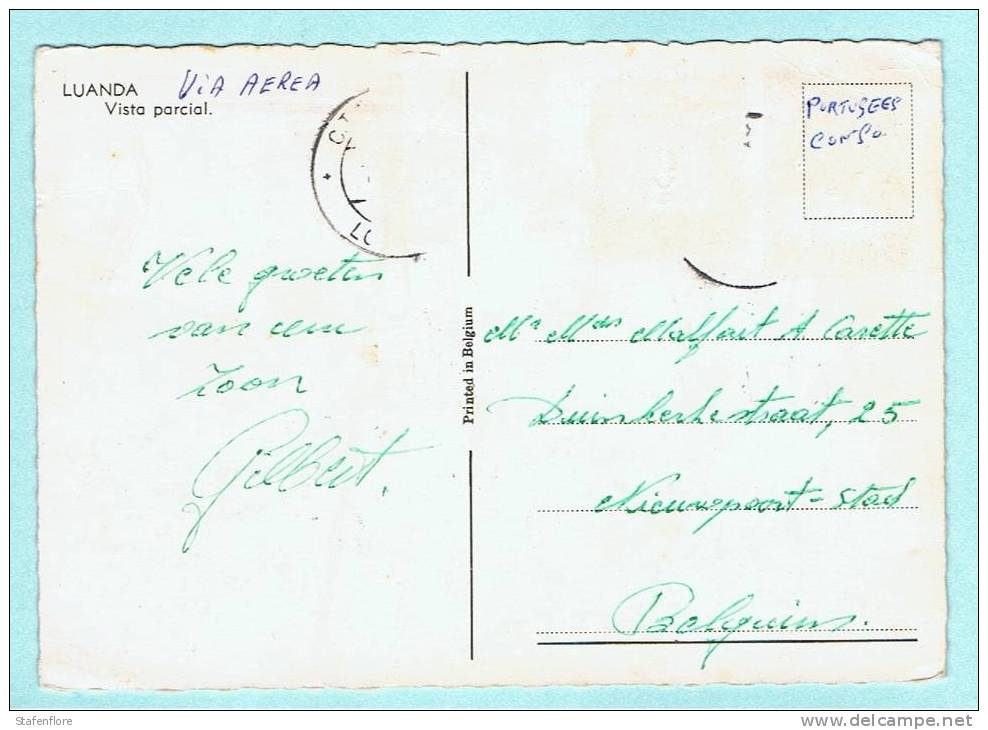 LUANDA
Vista parcial.
ViA AEREA
PORTUGEES
CONGO
Vele groeten
van uw
zoon
Gilbert.
Printed in Belgium
Mr Mds Malfait A Carette
Duinkerkestraat, 25
Nieuwpoort-Stad
Belguim.
Stafenflore
www.delcampe.net